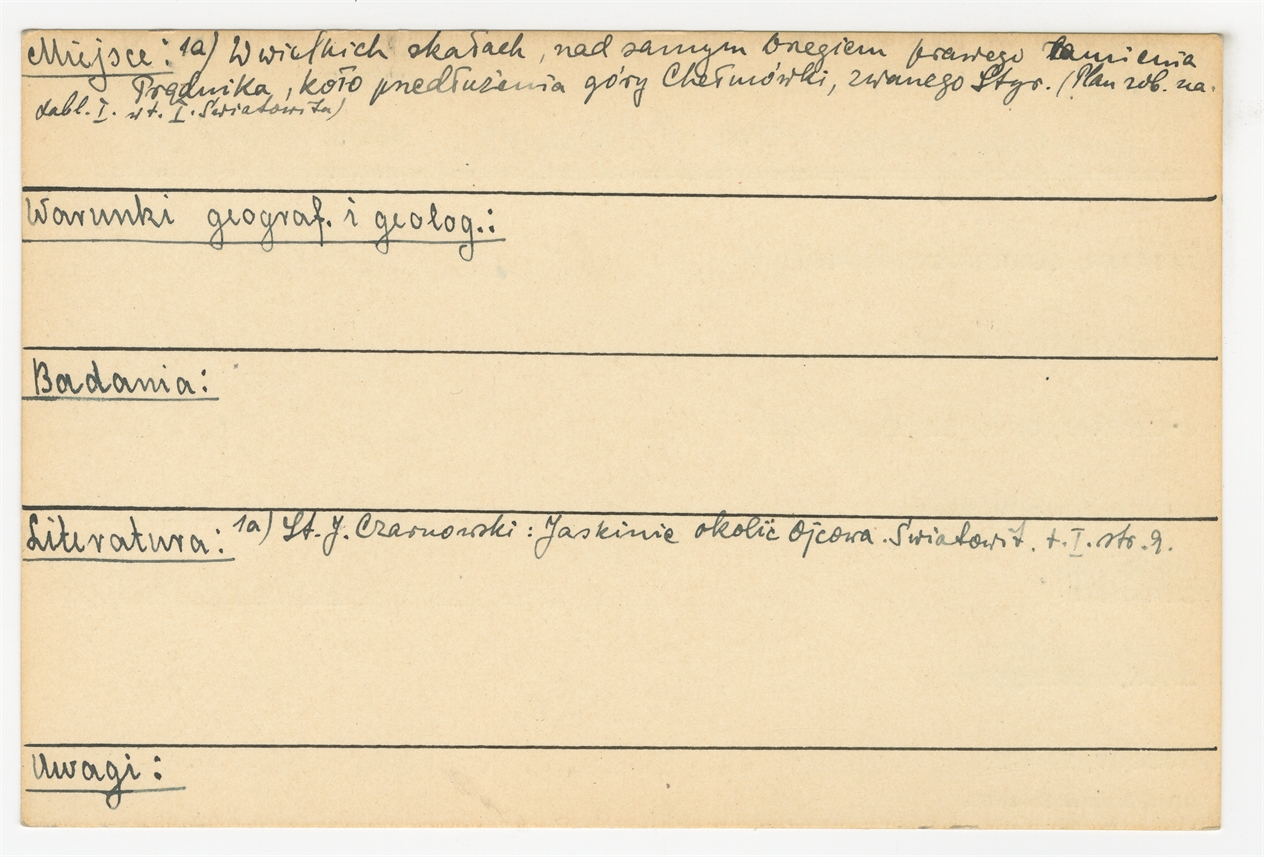 Miejsce: 1a) W wielkich skałach, nad samym brzegiem prawego ramienia
Prądnika, koło przedłużenia góry Chełmówki, zwanego Styr. (Plan zob. na
tabl. I. w t. I. Światowita)
Warunki geograf. i geolog.:
Badania:
Literatura: 1a) St. J. Czarnowski: Jaskinie okolic Ojcowa. Światowit. t. I. str. 9.
Uwagi: